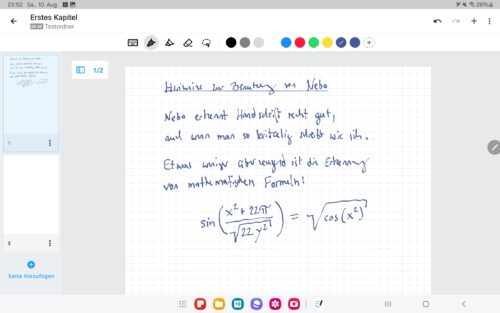 23:52 Sa., 10. Aug.
26%
Erstes Kapitel
Testordner
1/2
1
2
Seite hinzufügen
Hinweise zur Benutzung von Nebo
Nebo erkennt Handschrift recht gut,
auch wenn man so kritzelig schreibt wie ich.
Etwas weniger überzeugend ist die Erkennung
von mathematischen Formeln:
sin((x²+22π)/√(22y²)) = √(cos(x²))